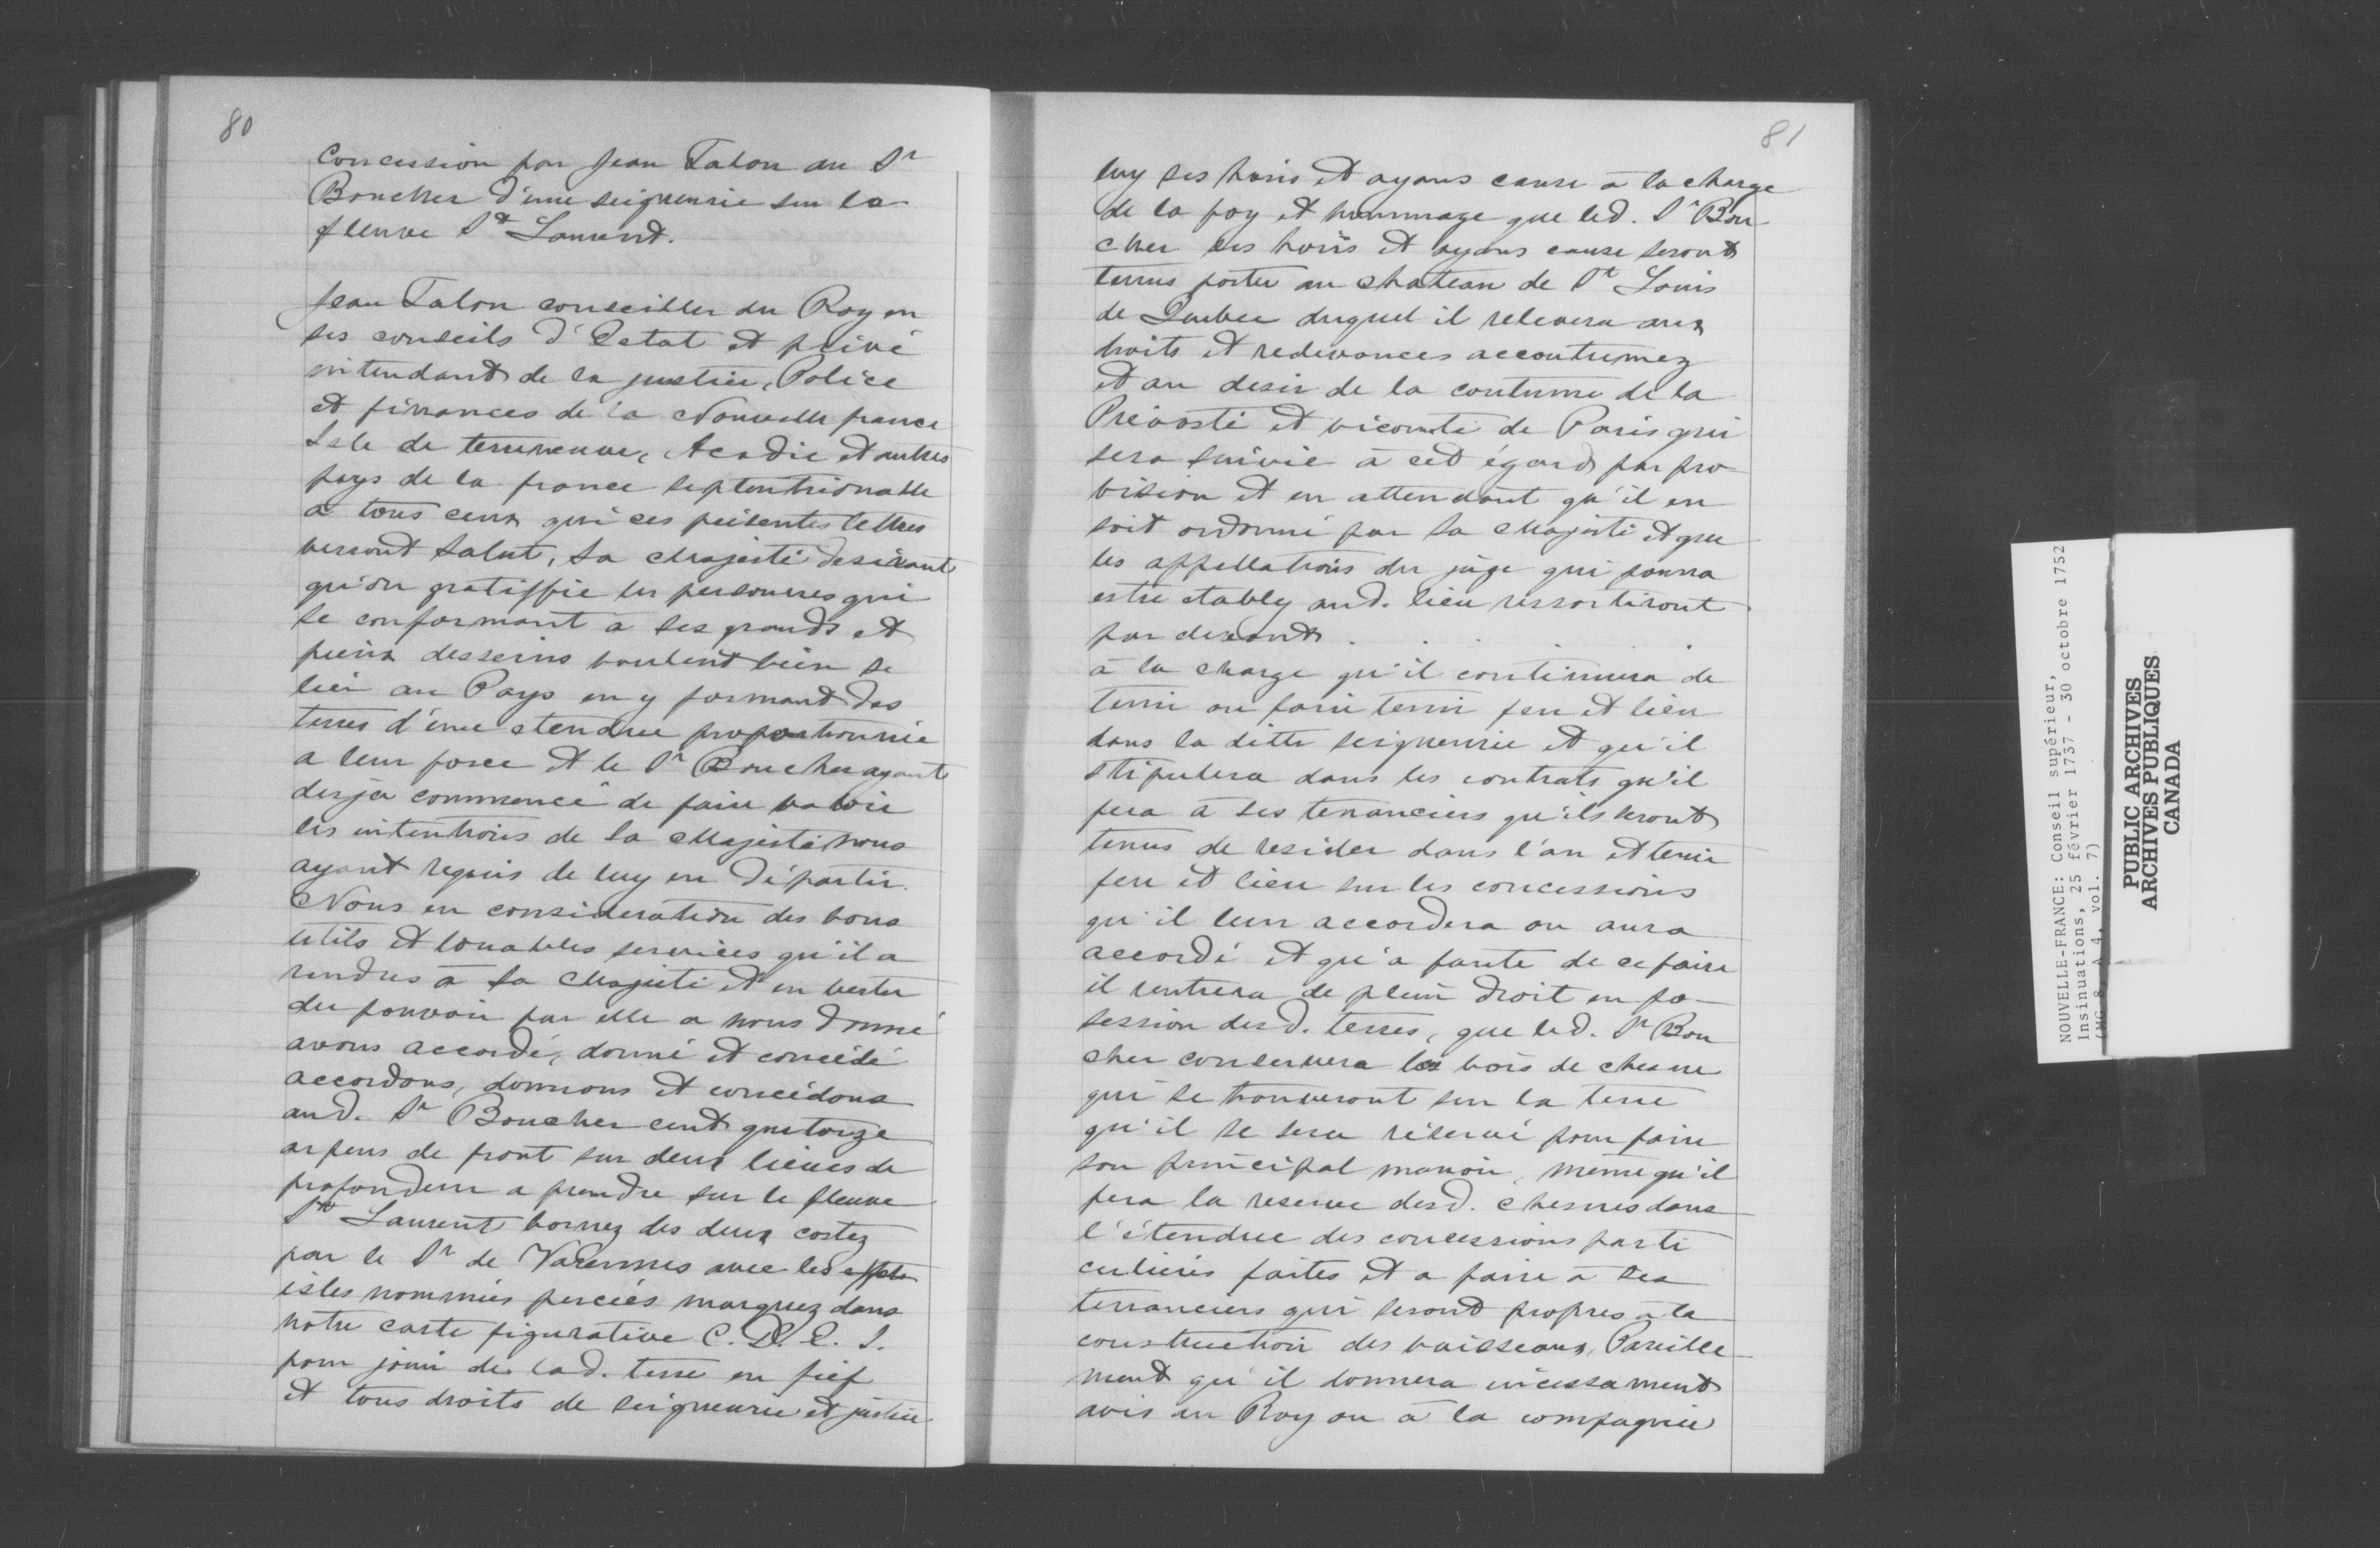 80
Concession par Jean Talon au Sr
Boucher d'une seigneurie sur la
fleuve St Laurent.
Jean Talon conseiller du Roy en
ses conseils d'Estat et privé
intendant de la justice, Police
et finances de la Nouvelle france
Isle de terreneuve, Acadie et autres
pays de la france septentrionalle
a tous ceux qui ces présentes lettres
verront Salut, Sa Majesté desirant
qu'on gratiffie les personnes qui
se conformant a ses grands et
pieux desseins veulent bien se
lier au Pays en y formant des
terres d'une etendue proportionnée
a leur force et le Sr Boucher ayant
desja commencé de faire valoir
les intentions de Sa Majesté nous
ayant requis de luy en départir.
Nous en consideration des bons
utils et louables services qu'il a
rendus à Sa Majesté et en vertu
du pouvoir par elle a nous donné
avons accordé, donné et concédé
accordons, donnons et concédons
aud. Sr Boucher cent quatorze
arpens de front sur deux lieues de
profondeur a prendre sur le fleuve
St Laurent bornez des deux costez
par le Sr de Varennes avec les
isles nommées percées marquez dans
notre carte figurative C. D. E. S.
pour jouir de lad. terre en fief
et tous droits de seigneurie et justice
81
luy ses hoirs et ayans cause à la charge
de la foy et hommage que led. Sr Bou
cher ses hoirs et ayans cause seront
tenus porter au chateau de St Louis
de Quebec duquel il relevera aux
droits et redevances accoutumez
et au desir de la coutume de la
Prévosté et vicomté de Paris qui
sera suivie à cet égard par pro
vision et en attendant qu'il en
soit ordonné par Sa Majesté et que
les appellations du juge qui pourra
estre etably aud. lieu ressortiront
par devant . . .
à la charge qu'il continuera de
tenir ou faire tenir feu et lieu
dans la ditte seigneurie et qu'il
stipulera dans les contrats qu'il
fera à ses tenanciers qu'ils seront
tenus de resider dans l'an et tenir
feu et lieu sur les concessions
qu'il leur accordera ou aura
accordé et qu'a faute de ce faire
il rentrera de plein droit en po-
session desd. terres, que led. Sr Bou
cher conservera les bois de chesne
qui se trouveront sur la terre
qu'il se sera réservé pour faire
son principal manoir, meme qu'il
fera la reserve desd. chesnes dans
l'étendue des concessions parti
culieres faites et a faire à ses
tenanciers qui seront propres à la
construction des vaisseaux, Pareille
ment qu'il donnera incessament
avis au Roy ou à la compagnie
NOUVELLE-FRANCE: Conseil supérieur,
Insinuations, 25 février 1737 - 30 octobre 1752
(MG 8, A 4, vol. 7)
PUBLIC ARCHIVES
ARCHIVES PUBLIQUES
CANADA